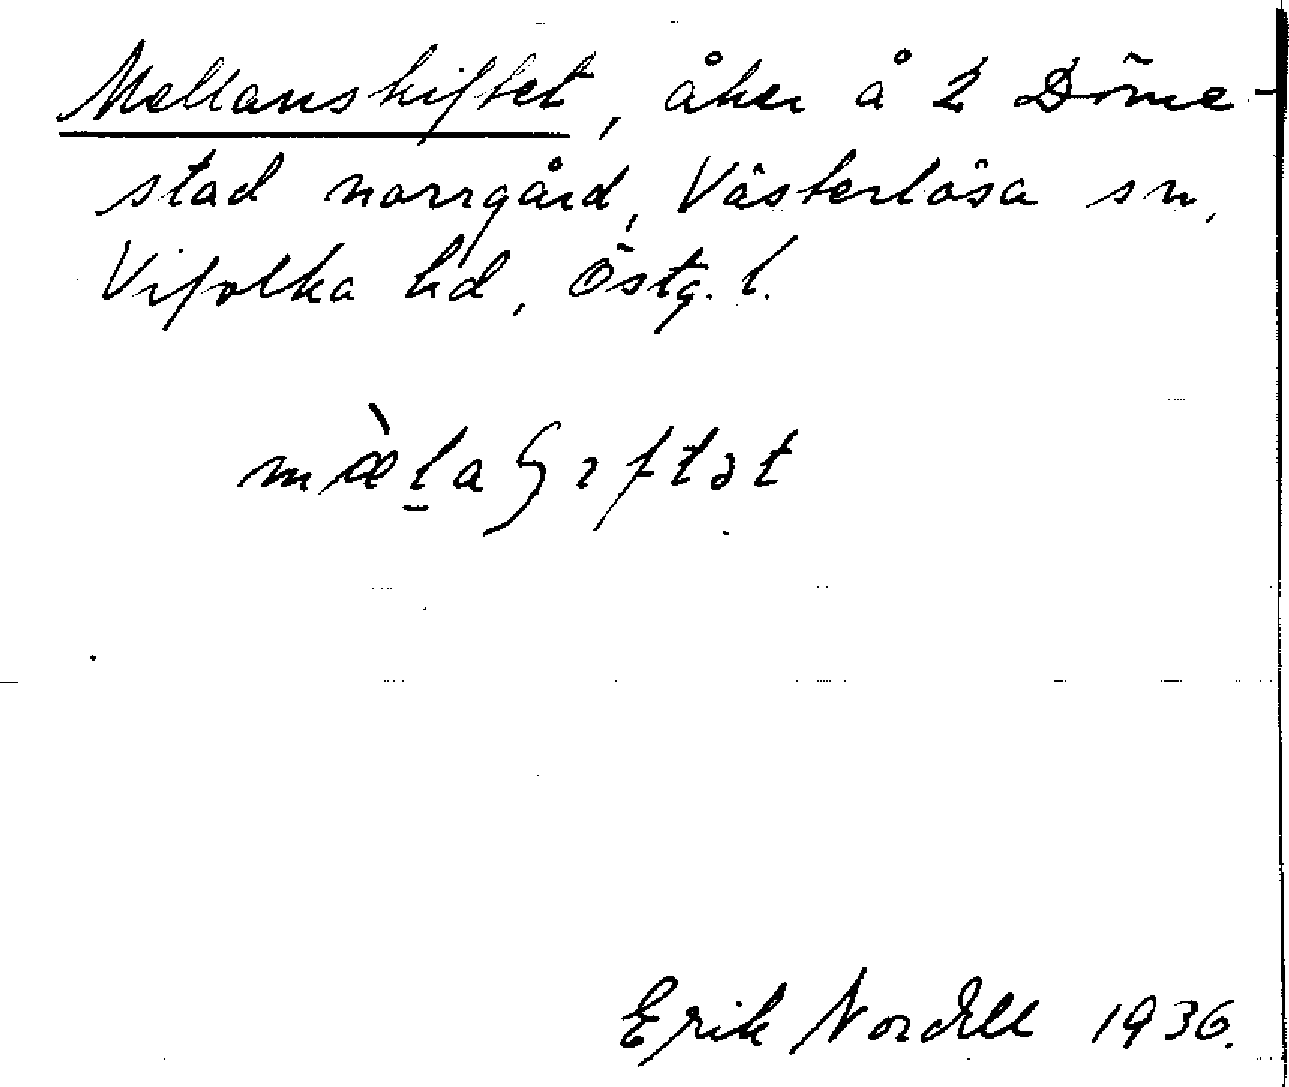 Mellanskiftet, åker å 2 Döme-
stad norrgård, Västerlösa sn,
Vifolka hd, Östg. l.
mæ̀l̠aʃɩftət
Erik Nordell 1936.